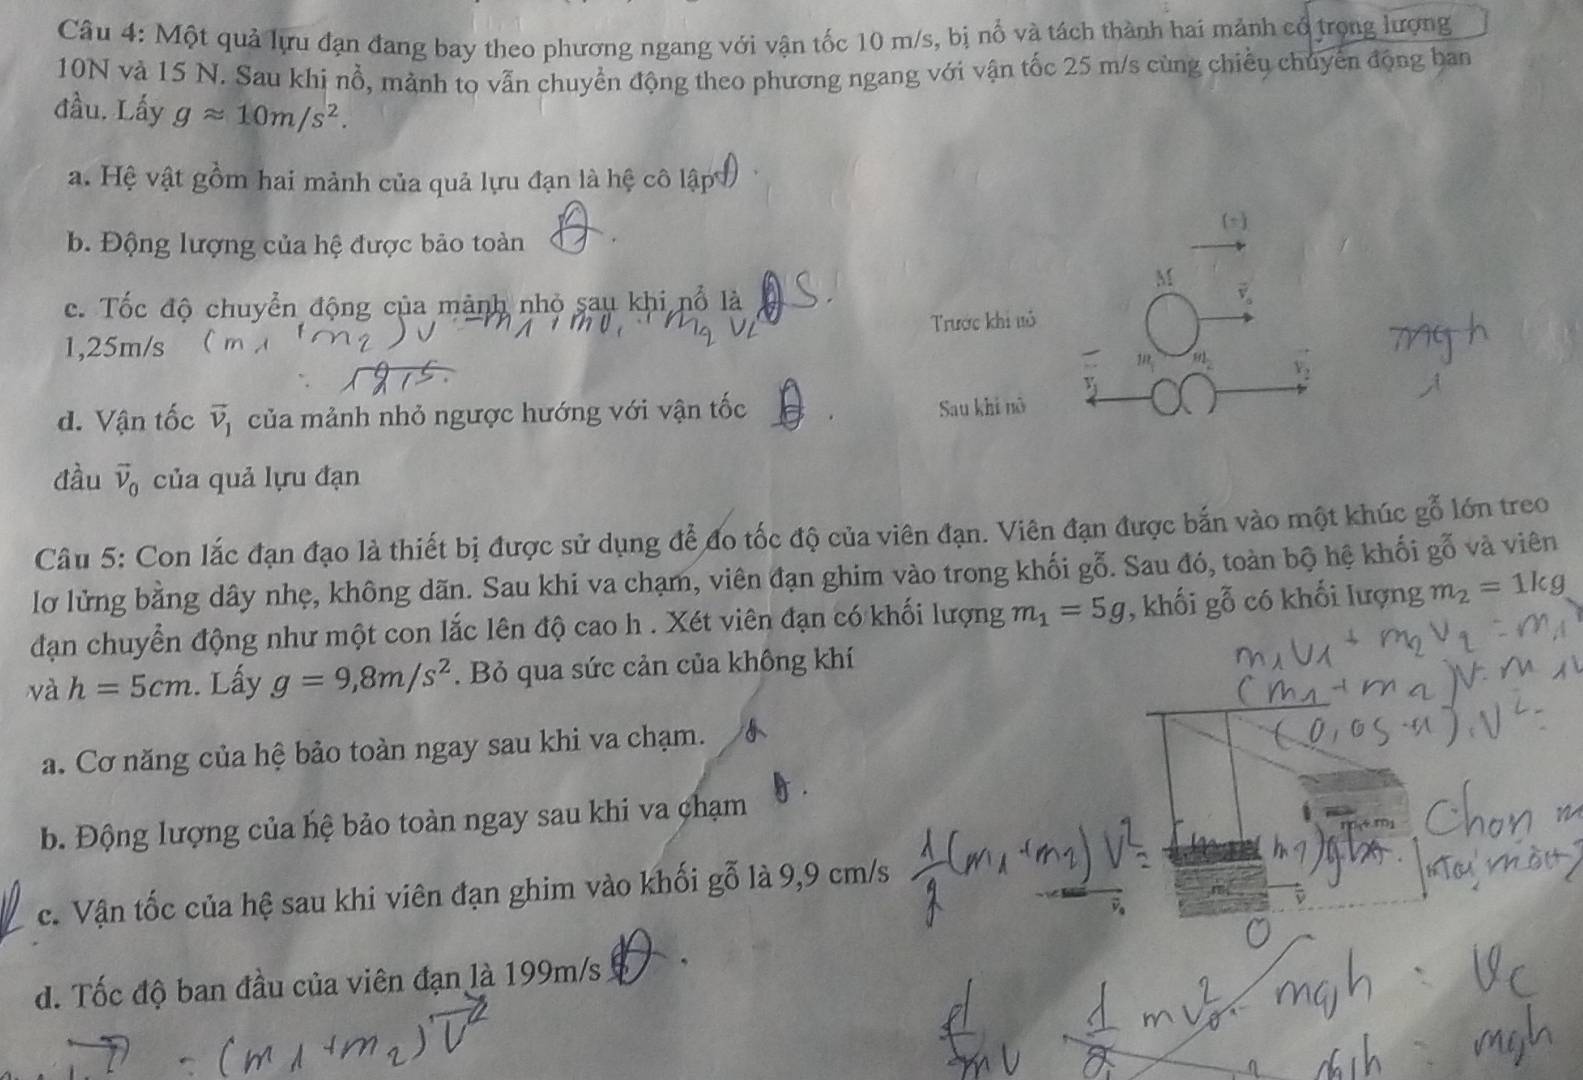 Câu 4: Một quả lựu đạn đang bay theo phương ngang với vận tốc 10 m/s, bị nổ và tách thành hai mảnh có trọng lượng
10N và 15 N. Sau khi nổ, mảnh to vẫn chuyển động theo phương ngang với vận tốc 25 m/s cùng chiều chuyển động ban
đầu. Lấy g ≈ 10m/s².
a. Hệ vật gồm hai mảnh của quả lựu đạn là hệ cô lập
(+)
b. Động lượng của hệ được bảo toàn
M
c. Tốc độ chuyển động của mảnh nhỏ sau khi nổ là S.
Trước khi nổ
1,25m/s (m1 + m2) v
mgh
d. Vận tốc v⃗₁ của mảnh nhỏ ngược hướng với vận tốc
Sau khi nổ
đầu v⃗₀ của quả lựu đạn
Câu 5: Con lắc đạn đạo là thiết bị được sử dụng để đo tốc độ của viên đạn. Viên đạn được bắn vào một khúc gỗ lớn treo
lơ lửng bằng dây nhẹ, không dãn. Sau khi va chạm, viên đạn ghim vào trong khối gỗ. Sau đó, toàn bộ hệ khối gỗ và viên
đạn chuyển động như một con lắc lên độ cao h . Xét viên đạn có khối lượng m₁ = 5g, khối gỗ có khối lượng m₂ = 1kg
m1v1 + m2v2 =
và h = 5cm. Lấy g = 9,8m/s². Bỏ qua sức cản của không khí
(m1 + m2)v
a. Cơ năng của hệ bảo toàn ngay sau khi va chạm.
b. Động lượng của hệ bảo toàn ngay sau khi va chạm
Chọn
c. Vận tốc của hệ sau khi viên đạn ghim vào khối gỗ là 9,9 cm/s
1/2(m1 + m2) v² =
O
d. Tốc độ ban đầu của viên đạn là 199m/s
mgh
= (m1 + m2) v⃗
mgh